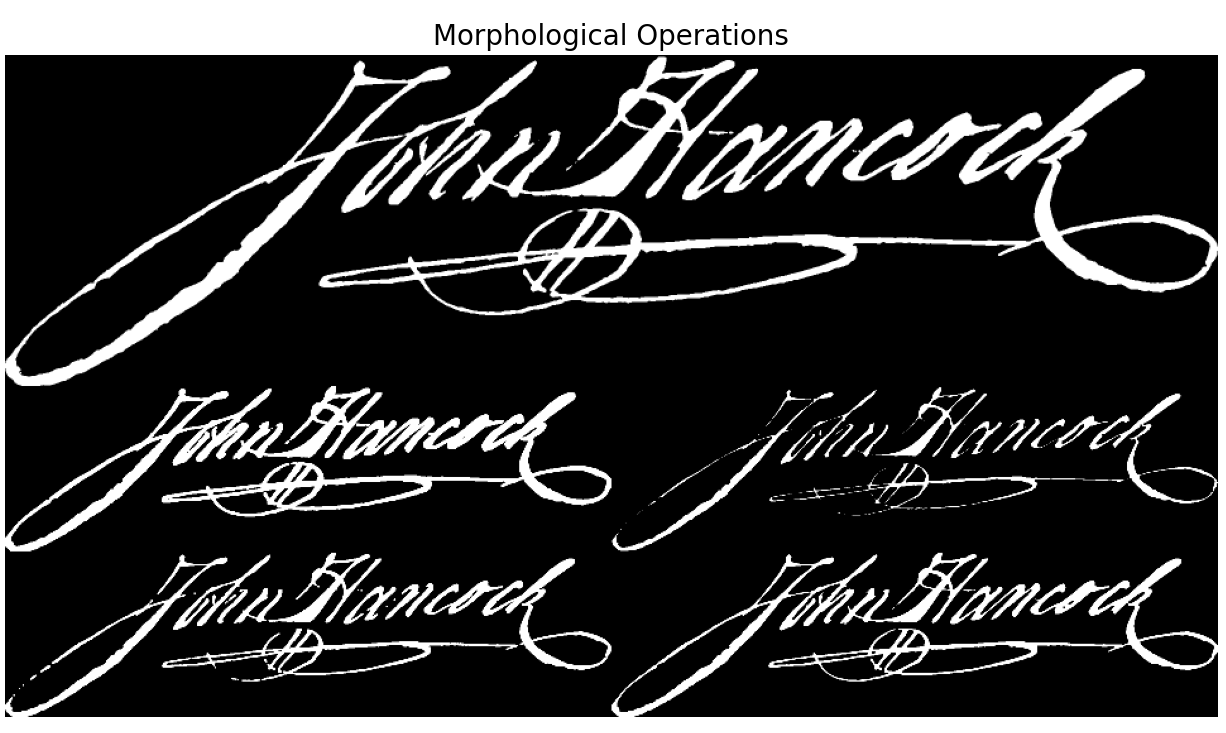 Morphological Operations
John Hancock
John Hancock John Hancock
John Hancock John Hancock